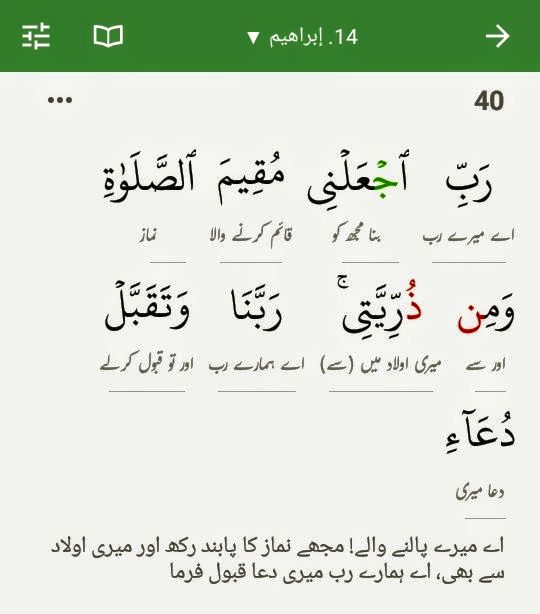 14. إبراهيم ▼
40
رَبِّ ٱجۡعَلۡنِی مُقِیمَ ٱلصَّلَوٰةِ
اے میرے رب بنا مجھ کو قائم کرنے والا نماز
وَمِن ذُرِّیَّتِی ۚ رَبَّنَا وَتَقَبَّلۡ
اور سے میری اولاد میں (سے) اے ہمارے رب اور تو قبول کرلے
دُعَاۤءِ
دعا میری
اے میرے پالنے والے! مجھے نماز کا پابند رکھ اور میری اولاد
سے بھی، اے ہمارے رب میری دعا قبول فرما